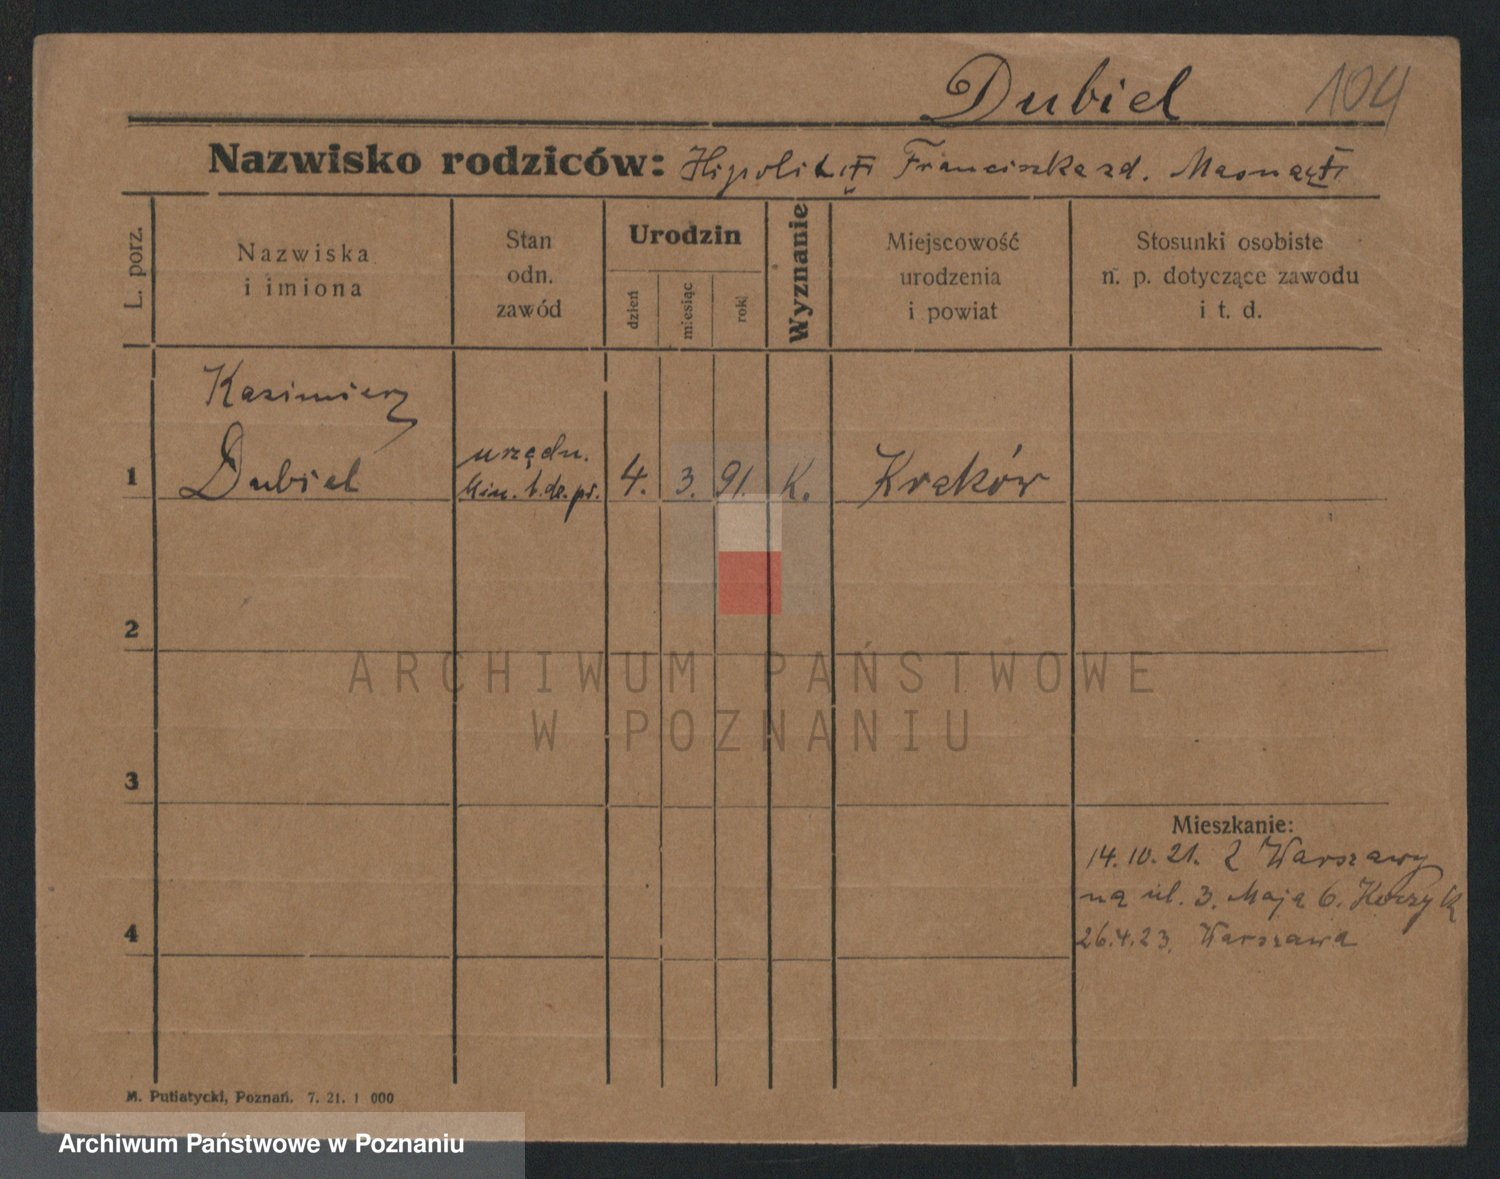 Dubiel 104
Nazwisko rodziców: Hipolit Franciszka zd.
L. porz.
Nazwiska
i imiona
Stan
odn.
zawód
Urodzin
dzień
miesiąc
rok
Wyznanie
Miejscowość
urodzenia
i powiat
Stosunki osobiste
n. p. dotyczące zawodu
i t. d.
Kazimierz
1 Dubiel urzędn. 4. 3. 91. K. Kraków
Min. b. dz. pr.
2
ARCHIWUM PAŃSTWOWE
W POZNANIU
3
Mieszkanie:
14.10.21. Z Warszawy
na ul. 3. Maja 6.
4
26.4.23. Warszawa
M. Putiatycki, Poznań. 7. 21. 1 000
Archiwum Państwowe w Poznaniu